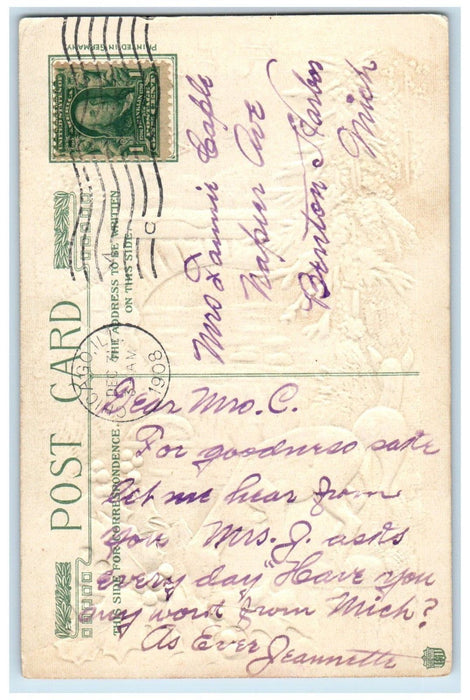 PRINTED IN GERMANY.
POST CARD
THE ADDRESS TO BE WRITTEN
ON THIS SIDE.
THIS SIDE FOR CORRESPONDENCE.
CHICAGO, ILL.
DEC 21
AM
1908
Mrs Fannie Caple
Napier Ave
Benton Harbor
Mich
Dear Mrs. C.
For goodness sake
let me hear from
you Mrs. J. asks
every day "Have you
any word" from Mich?
As Ever
Jeannette